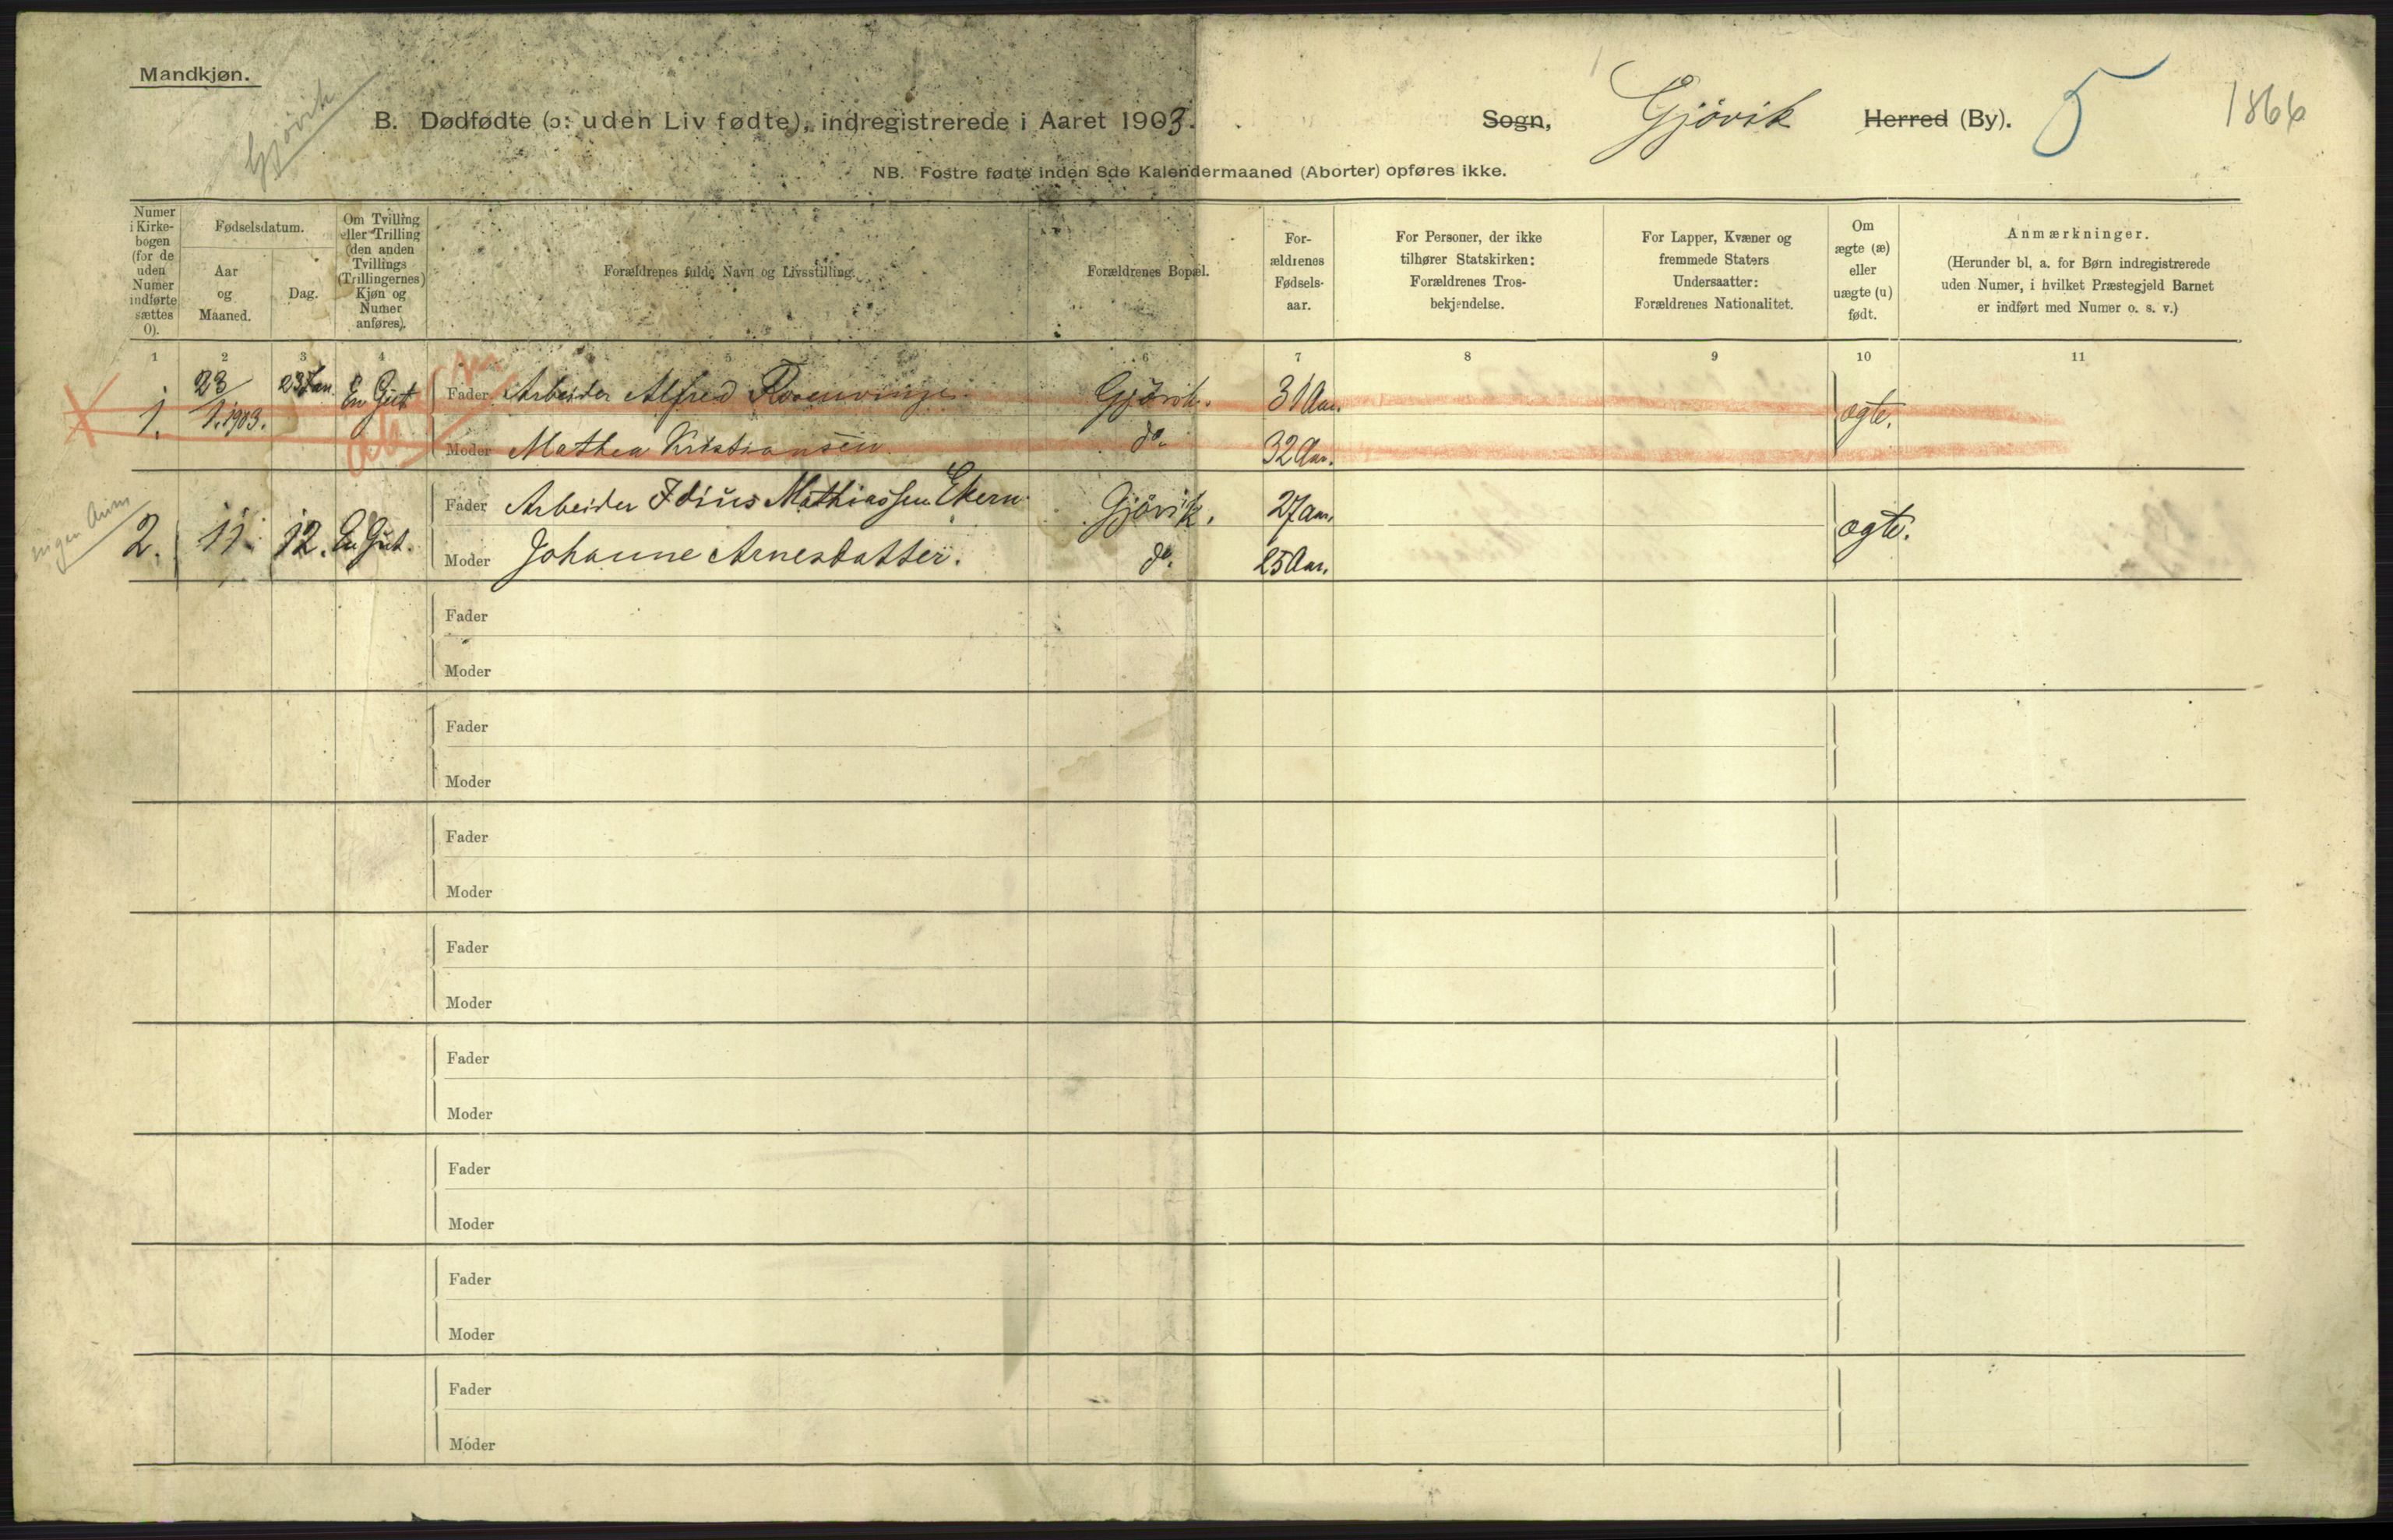 Mandkjøn.
Gjøvik
B. Dødfødte (ɔ: uden Liv fødte), indregistrerede i Aaret 1903.
Sogn, Gjövik Herred (By). 5 1866
NB. Fostre fødte inden 8de Kalendermaaned (Aborter) opføres ikke.
Numer i Kirke-bogen (for de uden Numer indførte sættes 0).
Fødselsdatum.
Aar og Maaned.
Dag.
Om Tvilling eller Trilling (den anden Tvillings (Trillingernes) Kjøn og Numer anføres).
Forældrenes fulde Navn og Livsstilling.
Forældrenes Bopæl.
For-ældrenes Fødsels-aar.
For Personer, der ikke tilhører Statskirken: Forældrenes Tros-bekjendelse.
For Lapper, Kvæner og fremmede Staters Undersaatter: Forældrenes Nationalitet.
Om ægte (æ) eller uægte (u) født.
Anmærkninger.
(Herunder bl. a. for Børn indregistrerede uden Numer, i hvilket Præstegjeld Barnet er indført med Numer o. s. v.)
1 2 3 4 5 6 7 8 9 10 11
1. 23/1. 1903. 23 Jan. En Gut Fader Arbeider Alfred Rosenvinge. Gjövik. 31 Aar. ægte.
Moder Mathea Kristiansen. do. 32 Aar.
2. 11. 12. En Gut. Fader Arbeider Mathiassen Ekern. Gjövik. 27 aar. ægte.
Moder Johanne Arnesdatter. do. 25 Aar.
Fader
Moder
Fader
Moder
Fader
Moder
Fader
Moder
Fader
Moder
Fader
Moder
Fader
Moder
Fader
Moder